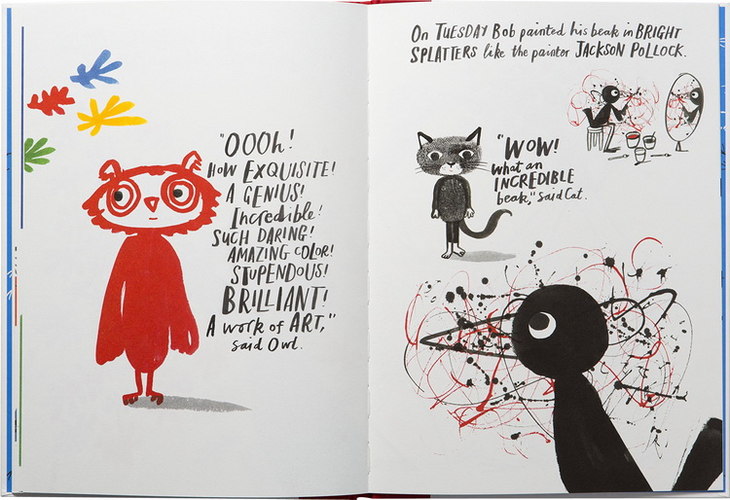 "OOOh!
HOW EXQUISITE!
A GENIUS!
Incredible!
SUCH DARING!
AMAZING COLOR!
STUPENDOUS!
BRILLIANT!
A work of ART,"
said Owl.
On TUESDAY Bob painted his beak in BRIGHT
SPLATTERS like the painter JACKSON POLLOCK.
"WOW!
what an
INCREDIBLE
beak," said Cat.